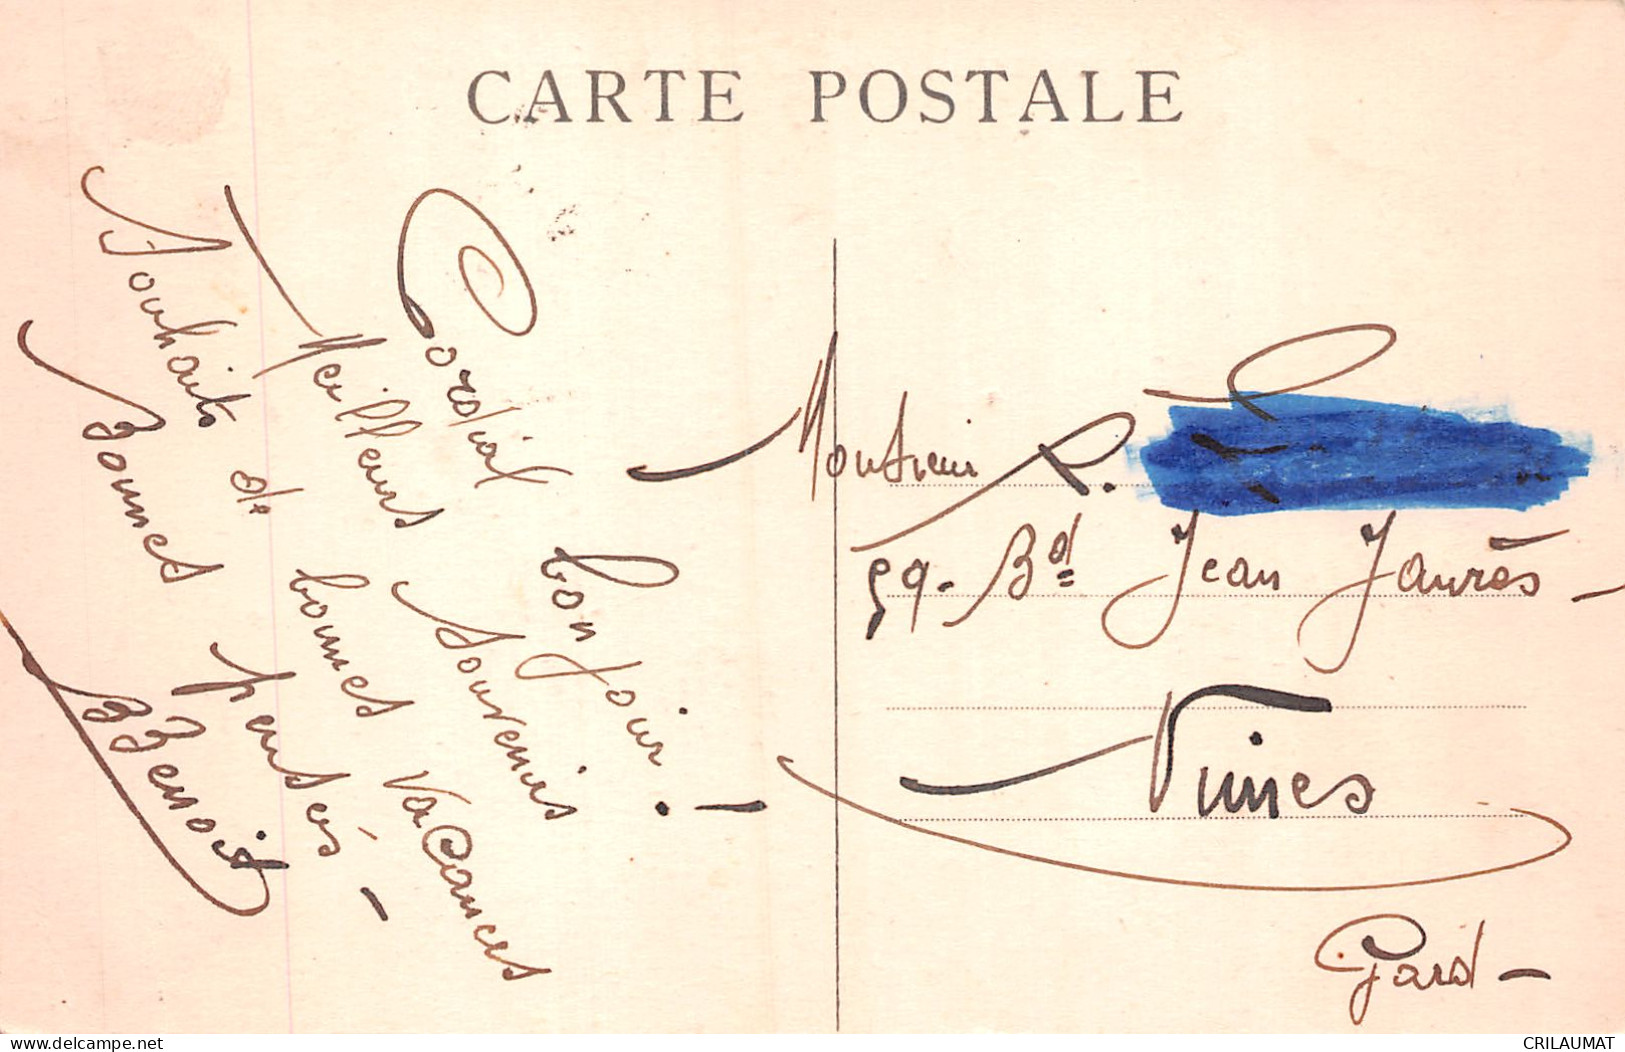 CARTE POSTALE
Cordial bonjour ! –
Meilleurs Souvenirs
Souhaits de bonnes vacances
Bonnes pensés –
B Benoit
Monsieur R.
59 - Bd Jean Jaurès –
Nimes
Gard –
www.delcampe.net
CRILAUMAT